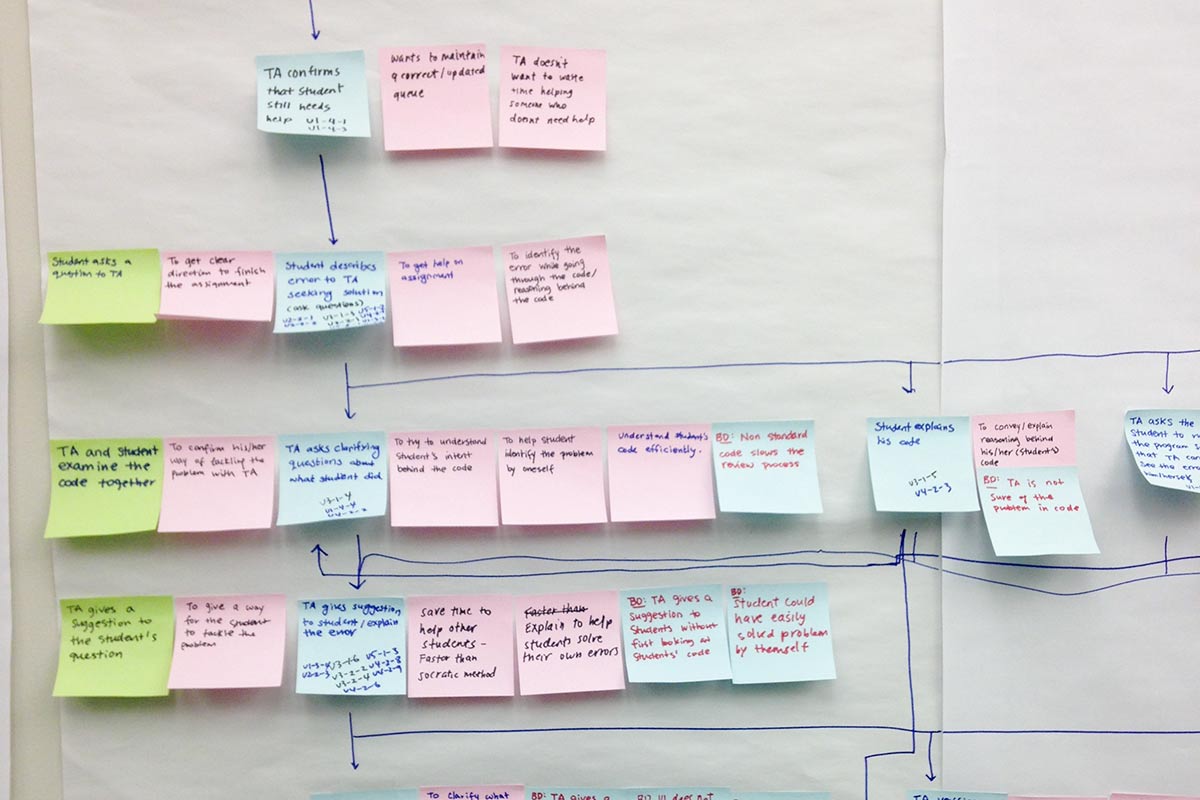 TA confirms
that student
still needs
help U1-4-1
U1-4-3
wants to maintain
a correct/updated
queue
TA doesn't
want to waste
time helping
someone who
doesnt need help
Student asks a
question to TA
To get clear
direction to finish
the assignment
Student describes
error to TA
seeking solution
(ask questions)
To get help on
assignment
To identify the
error while going
through the code/
reasoning behind
the code
TA and student
examine the
code together
To confirm his/her
way of tackling the
problem with TA
TA asks clarifying
questions about
what student did
U3-1-4
U1-4-4
To try to understand
Student's intent
behind the code
To help student
identify the problem
by oneself
Understand student's
code efficiently.
BD: Non standard
code slows the
review process
Student explains
his code
U3-1-5
U4-2-3
To convey/explain
reasoning behind
his/her (students)
code
BD: TA is not
sure of the
problem in code
TA asks the
Student to
the program
that TA can
See the
TA gives a
suggestion to
the student's
question
To give a way
for the student
to tackle the
problem
TA gives suggestion
to student/explain
the error
U3-1-6 U5-1-3
U3-2-2 U4-2-8
U3-2-4
U4-2-6
save time to
help other
students -
Faster than
socratic method
Faster than
Explain to help
students solve
their own errors
BD: TA gives a
suggestion to
students without
first looking at
students' code
BD:
Student could
have easily
solved problem
by themself
To clarify what
BD: TA gives a
does not
TA